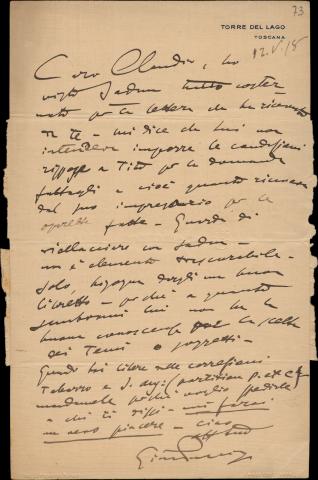 73
TORRE DEL LAGO
TOSCANA
12.V.18
Caro Claudio, ho
visto Sadun tutto coster-
nato per la lettera che ha ricevuto
da te - mi dice che lui non
intendeva imporre le condizioni
a Tito per la domanda
fattagli e cioè quanto riceveva
dal suo impresario per le
operette fatte - Guarda di
riallacciare con Sadun -
non è elemento trascurabile -
solo, bisogna dargli un buon
libretto - perchè a quanto
lui non ha la
buona conoscenza la scelta
dei Temi o soggetti -
Quando hai libere dalle correzioni
Tabarro e S. Ang: partizioni p. e C.
mandamele poichè voglio vederle
e chi ti dissi - mi farai
un vero piacere - ciao
aff tuo
Giacomo